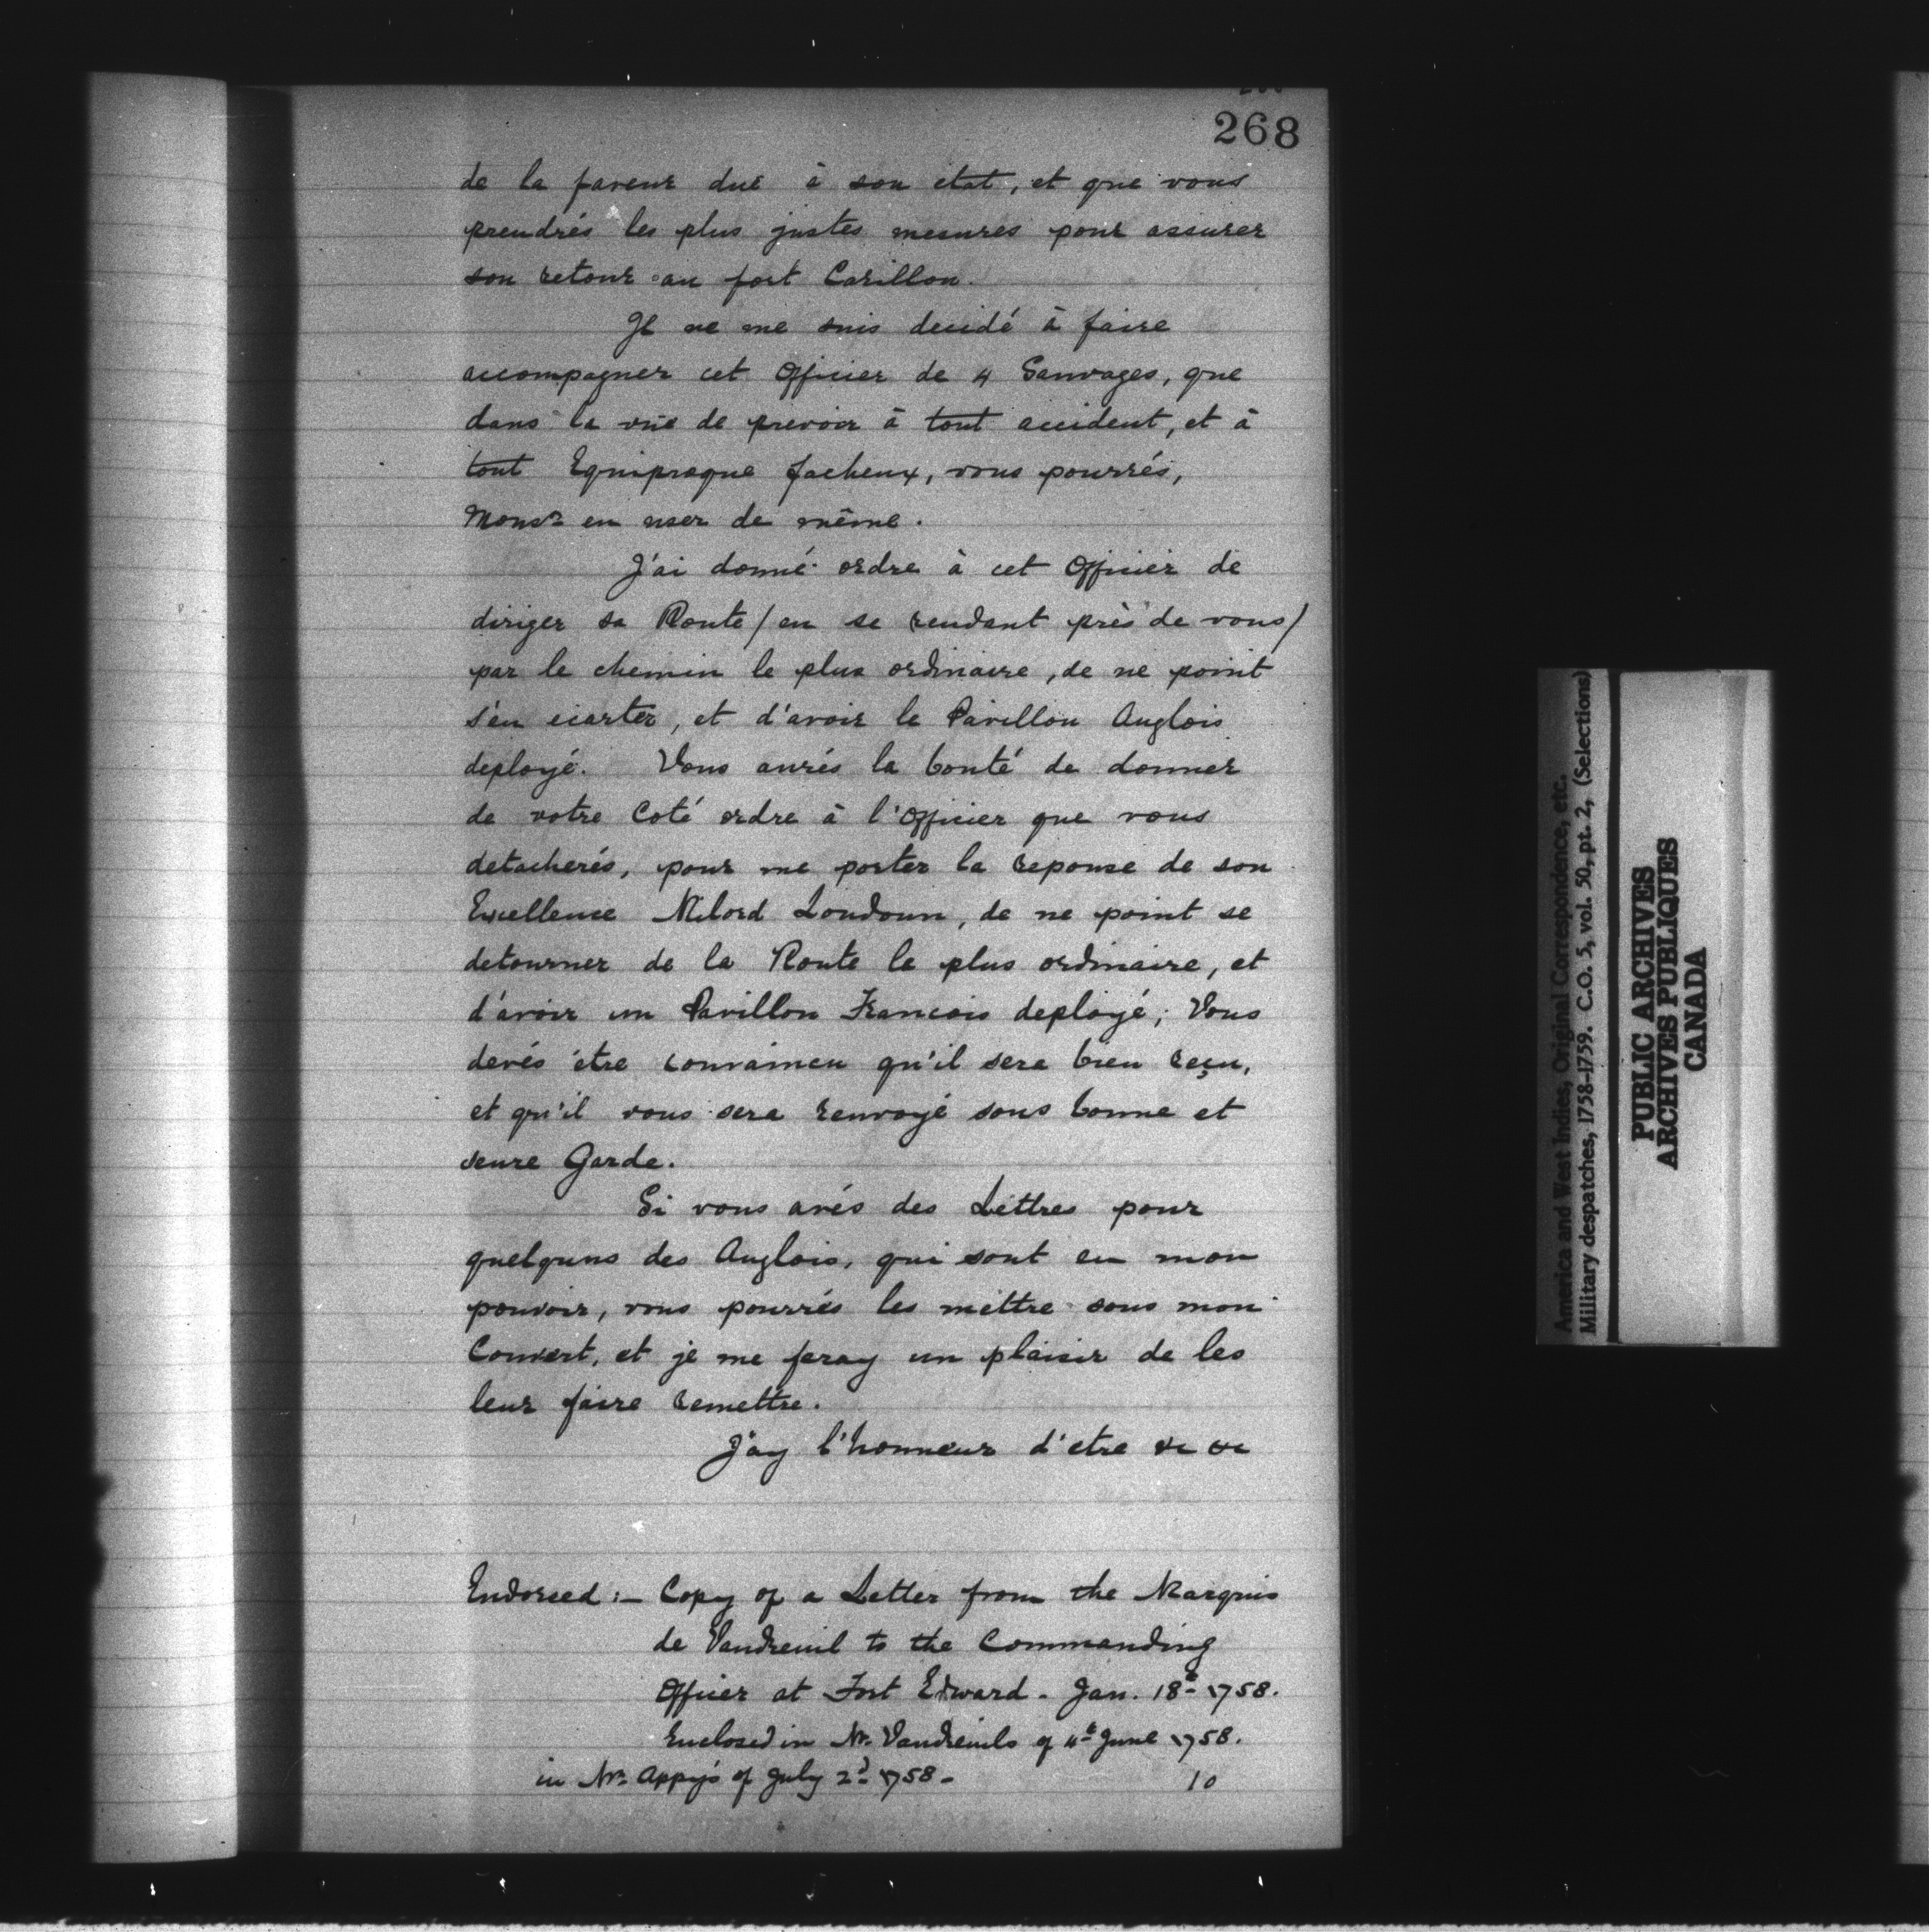 268
de la faveur due à son etat, et que vous
prendrés les plus justes mesures pour assurer
son retour au fort Carillon.
Je ne me suis decidé à faire
accompagner cet Officier de 4 Sauvages, que
dans la vüe de prevoir à tout accident, et à
tout Equiproque facheux, vous pourrés,
Monsr en user de même.
J'ai donné ordre à cet Officier de
diriger sa Route / en se rendant près de vous /
par le chemin le plus ordinaire, de ne point
s'en ecarter, et d'avoir le Pavillon Anglois
deployé. Vous aurés la bonté de donner
de votre Coté ordre à l'Officier que vous
detacherés, pour me porter la reponse de son
Excellence Milord Loudoun, de ne point se
detourner de la Route la plus ordinaire, et
d'avoir un Pavillon Francois deployé; Vous
devés etre convaincu qu'il sera bien reçu,
et qu'il vous sera renvoyé sous bonne et
seure Garde.
Si vous avés des Lettres pour
quelquns des Anglois, qui sont en mon
pouvoir, vous pourrés les mettre sous mon
Couvert, et je me feray un plaisir de les
leur faire remettre.
J'ay l'honneur d'etre &c &c
Endorsed :- Copy of a Letter from the Marquis
de Vaudreuil to the Commanding
Officer at Fort Edward. Jan. 18th 1758.
Enclosed in Mr. Vaudreuils of 4th June 1758.
in Mr. Appy's of July 2d 1758 -
10
America and West Indies, Original Correspondence, etc.
Military despatches, 1758-1759. C.O. 5, vol. 50, pt. 2, (Selections)
PUBLIC ARCHIVES
ARCHIVES PUBLIQUES
CANADA